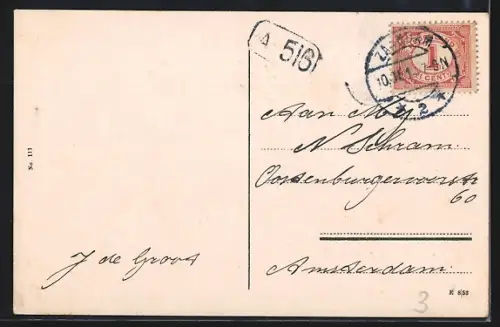 A 516
1 CENT
2
Aan Mej
N Schram
Oostenburgervoorstr
60
Amsterdam
J de Groot
No 111
K 853
3